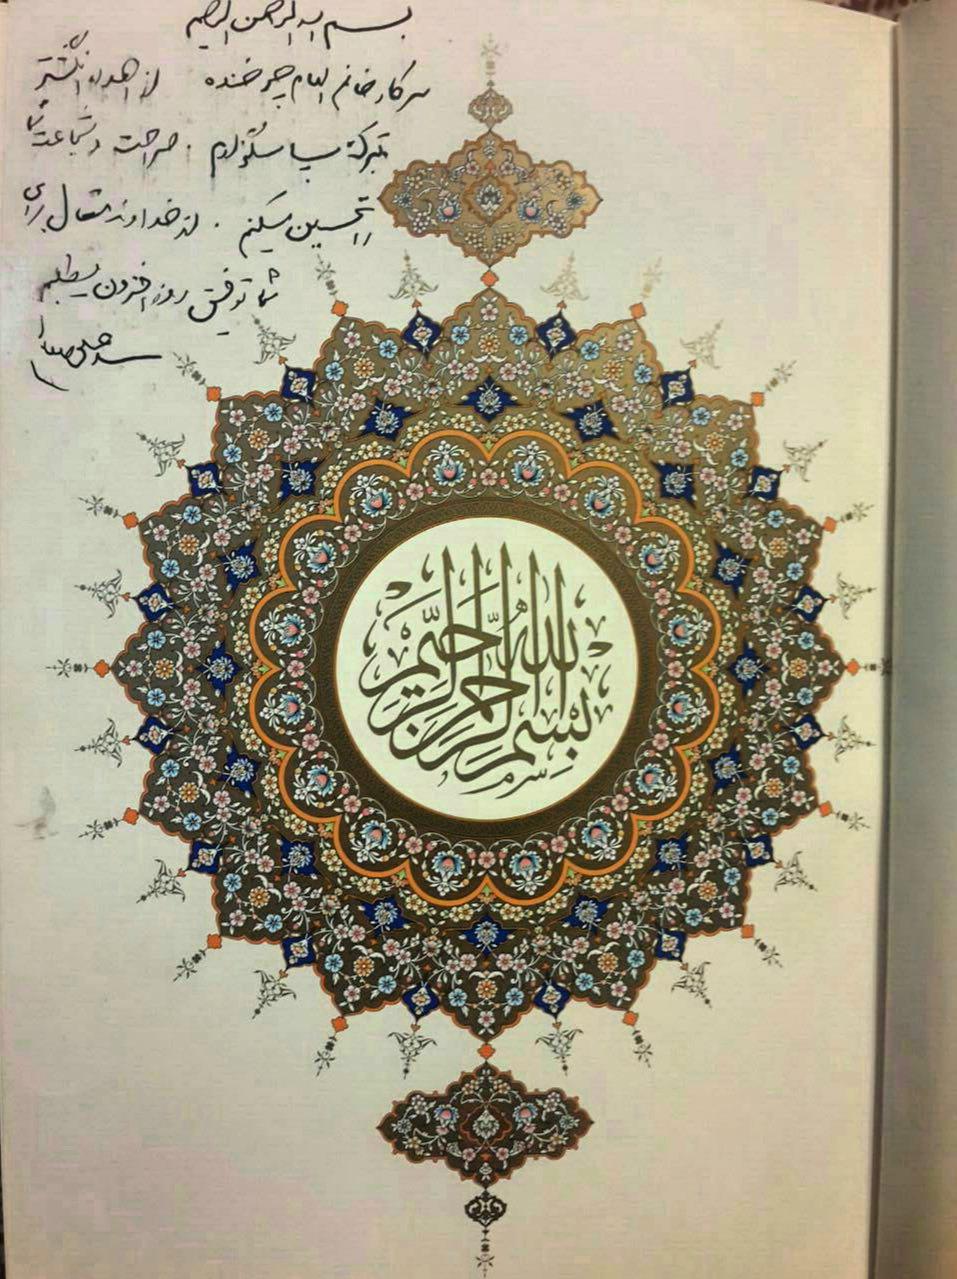 بسم الله الرحمن الرحیم
سرکار خانم الهام چرخنده از اهداء انگشتر
تبرکه سپاسگزارم . صراحت و شجاعت شما
را تحسین میکنم . از خداوند متعال برای
شما توفیق روزافزون میطلبم
سید
بِسْمِ اللهِ الرَّحْمنِ الرَّحِيْمِ